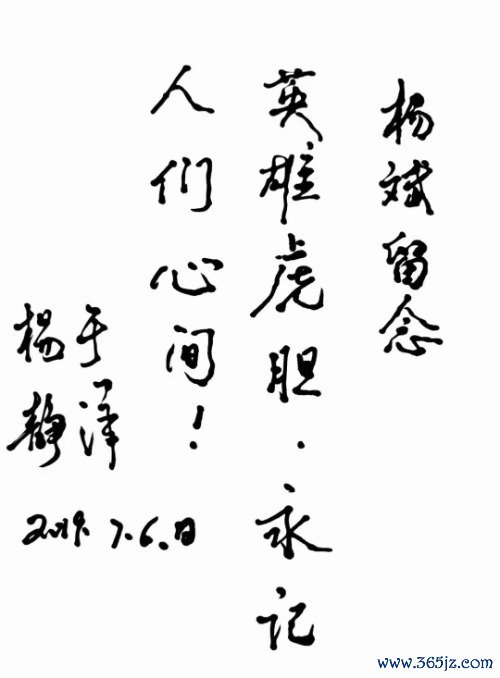 杨斌留念
英雄虎胆·永记
人们心间！
于泽
楊静
2019.7.6.日
www.365jz.com